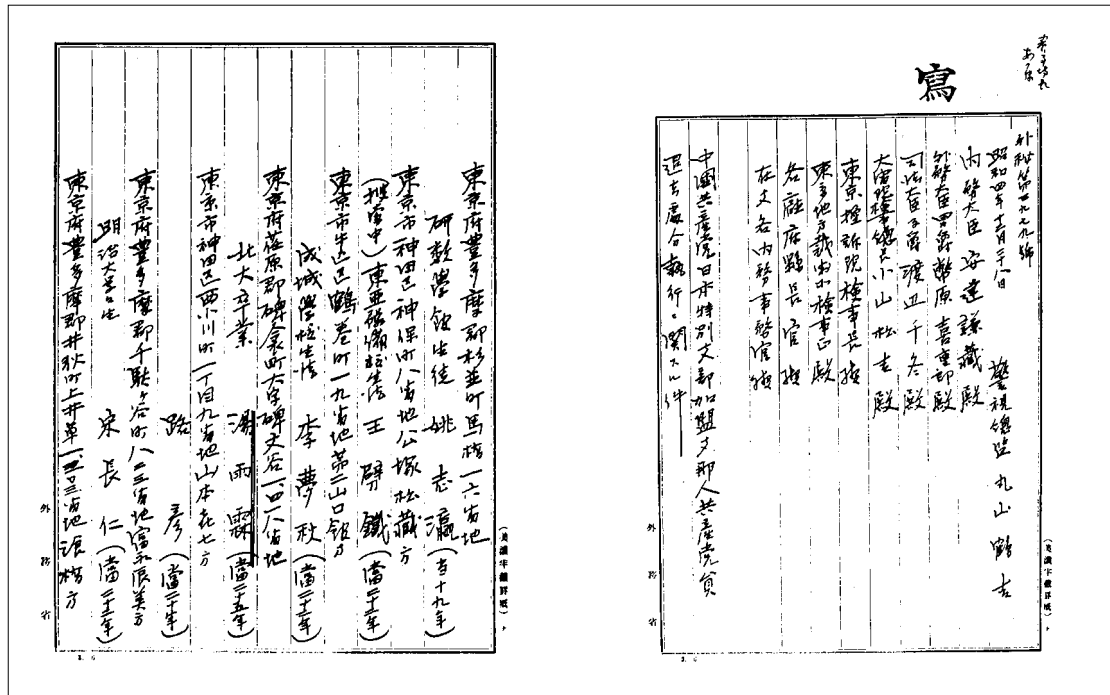 寫
外秘第四九九九號
昭和四年十二月二十八日
警視總監 丸山鶴吉
内務大臣 安達謙藏 殿
外務大臣男爵幣原喜重郎殿
司法大臣子爵渡辺千冬殿
大審院検事總長小山松吉殿
東京控訴院検事長殿
東京地方裁判所検事正殿
各廳府縣長官殿
在支各内務事務官殿
中國共産党日本特別支部加盟支那人共産党員
退去處分執行ニ関スル件
外務省
東京府豊多摩郡杉並町馬橋一六番地
研数學館生徒 姚志瀛(當十九年)
東京市神田区神保町八番地公塚松藏方
(捜査中)東亜豫備校生徒 王劈鐵(當二十三年)
東京市牛込区鶴巻町一九番地第二山口館方
成城學校生徒 李夢秋(當二十二年)
東京府荏原郡碑衾町大字碑文谷一四一八番地
北大卒業 湯雨霖(當二十五年)
東京市神田区西小川町一丁目九番地山本花七方
路彦(當二十年)
東京府豊多摩郡千駄ヶ谷町八三番地富永辰美方
明治大學生 宋長仁(當二十三年)
東京府豊多摩郡井荻町上井草一五三三番地
外務省